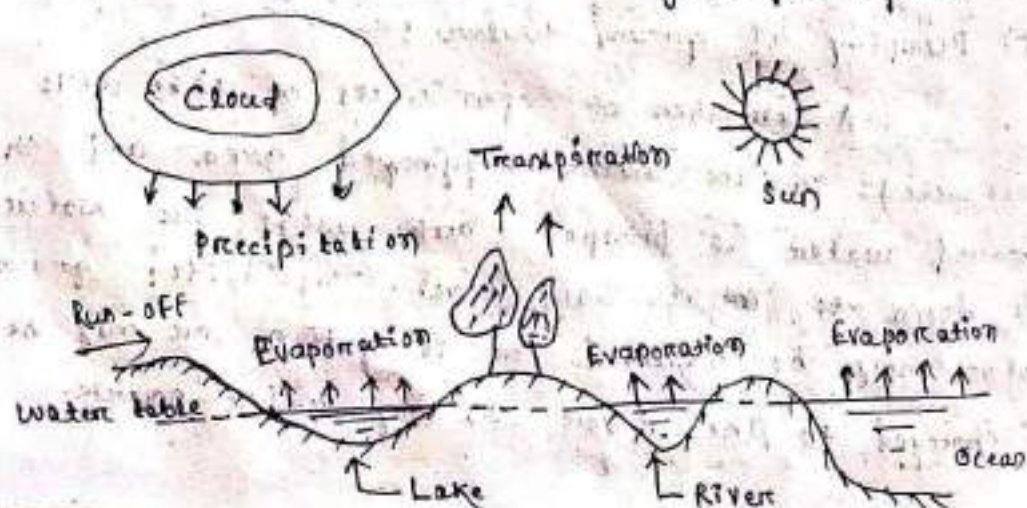 Cloud
Transpiration
Sun
Precipitation
Run-off
Evaporation
Evaporation
Evaporation
Water table
Ocean
Lake
River